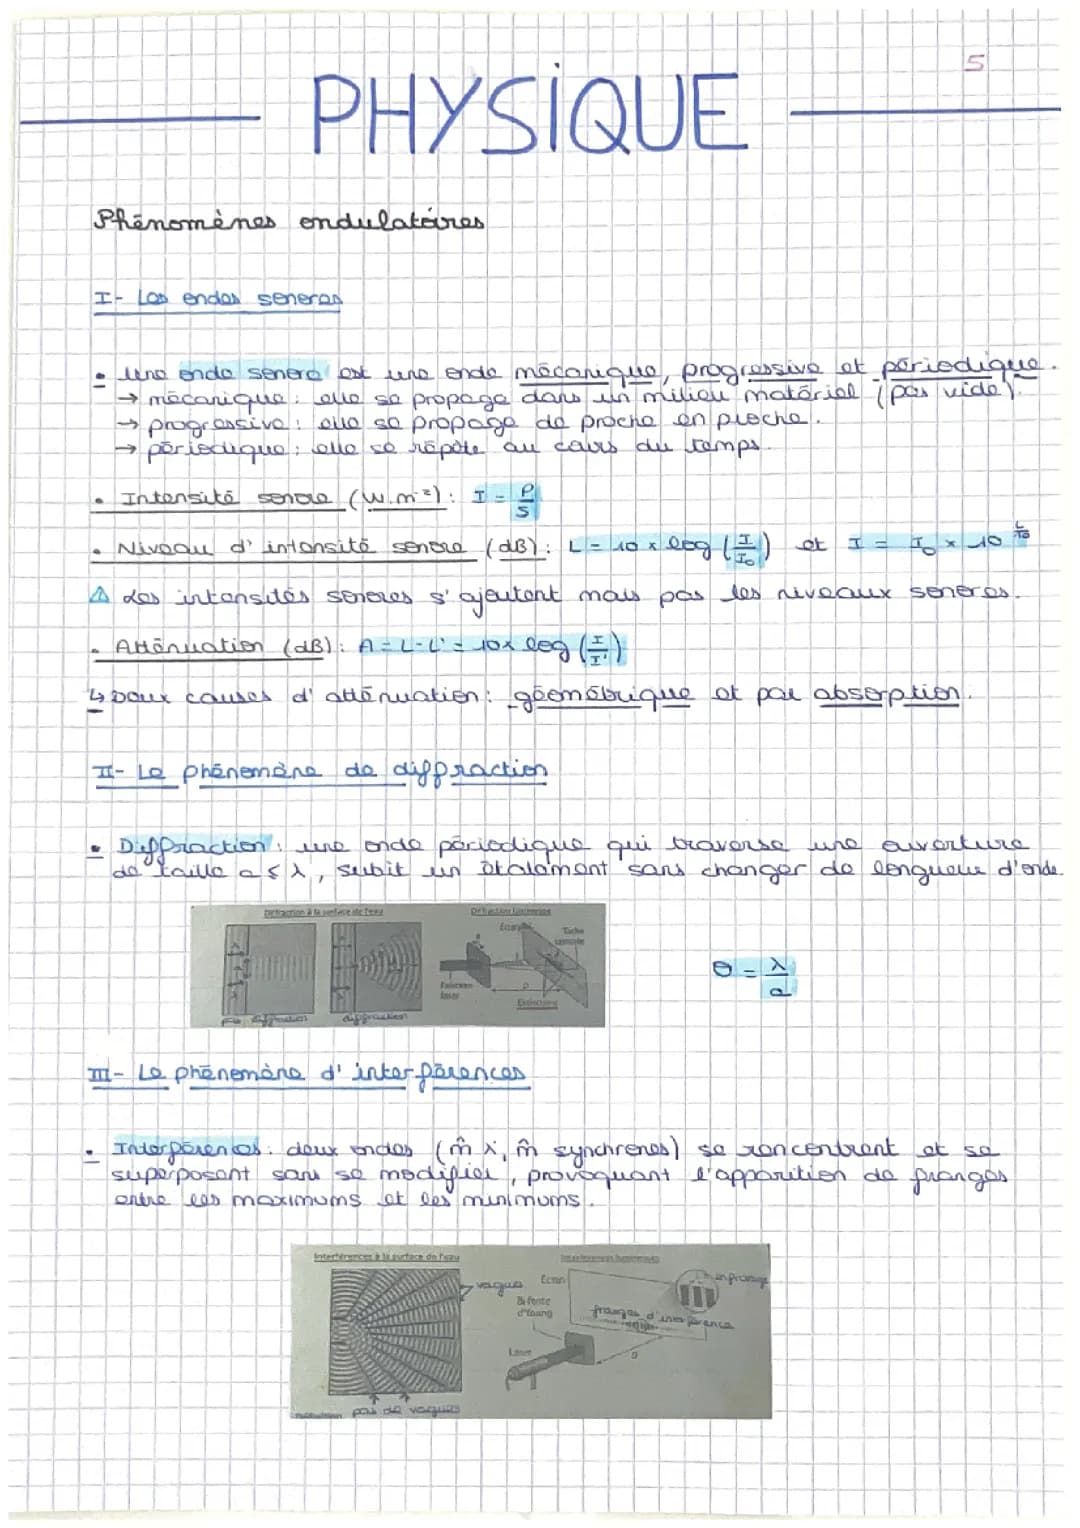 5
PHYSIQUE
Phénomènes ondulatoires
I- Les ondes sonores
• Une onde sonore est une onde mécanique, progressive et périodique.
→ mécanique : elle se propage dans un milieu matériel (pas vide).
→ progressive : elle se propage de proche en proche.
→ périodique : elle se répète au cours du temps.
• Intensité sonore (W.m⁻²) : I = P/S
• Niveau d'intensité sonore (dB) : L = 10 x log (I/I₀) et I = I₀ x 10^(L/10)
⚠ Les intensités sonores s'ajoutent mais pas les niveaux sonores.
• Atténuation (dB) : A = L-L' = 10x log (I/I')
↳ Deux causes d'atténuation : géométrique et par absorption.
II- Le phénomène de diffraction
• Diffraction : une onde périodique qui traverse une ouverture
de taille a ≤ λ, subit un étalement sans changer de longueur d'onde.
Diffraction à la surface de l'eau
Diffraction lumineuse
Ecran
Tache
centrale
λ
λ
θ = λ/a
Faisceau
laser
D
Extinctions
pas diffraction
diffraction
III- Le phénomène d'interférences
• Interférences : deux ondes (m̂ λ, m̂ synchrones) se rencontrent et se
superposent sans se modifier, provoquant l'apparition de franges
entre les maximums et les minimums.
Interférences à la surface de l'eau
Interférences lumineuses
vagues
Ecran
interfrange
Bi-fente
d'Young
franges d'interférence
Laser
D
pas de vagues